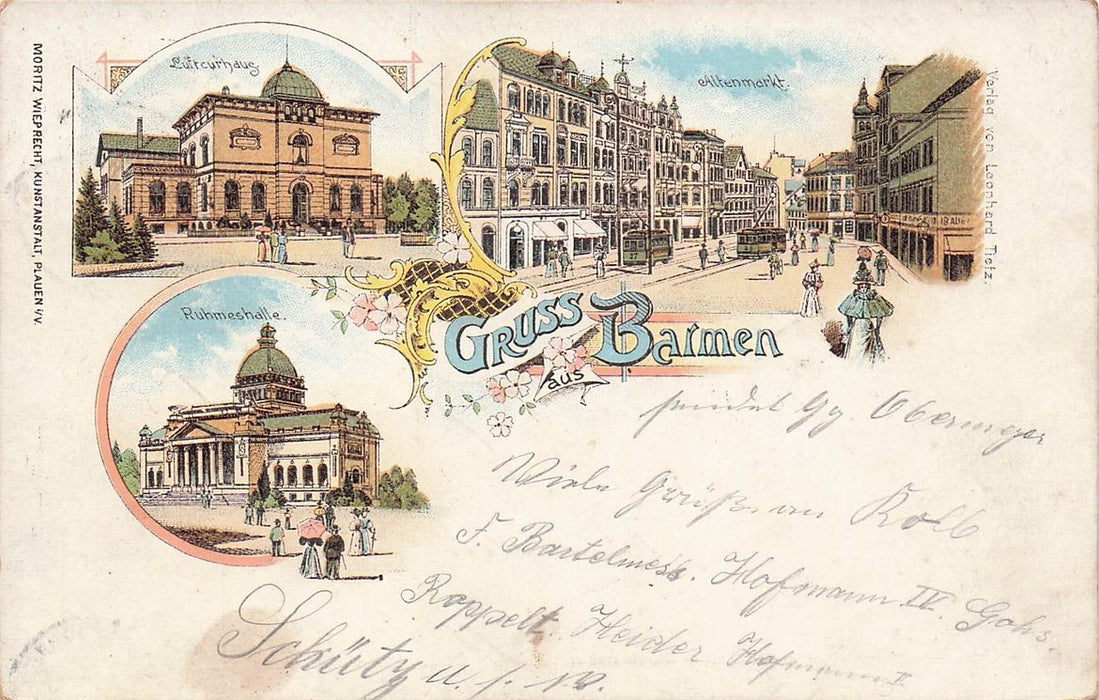 MORITZ WIEPRECHT, KUNSTANSTALT, PLAUEN i/V.
Luftcurhaus
Altenmarkt.
Verlag von Leonhard Tietz.
Ruhmeshalle.
GRUSS
aus
Barmen
sendet Gg Obermeyer
Viele Grüße an Kolb
F. Bartelmess. Hofmann IV Gohs.
Roppelt. Heider Hofmann II
Schütz u. s. w.